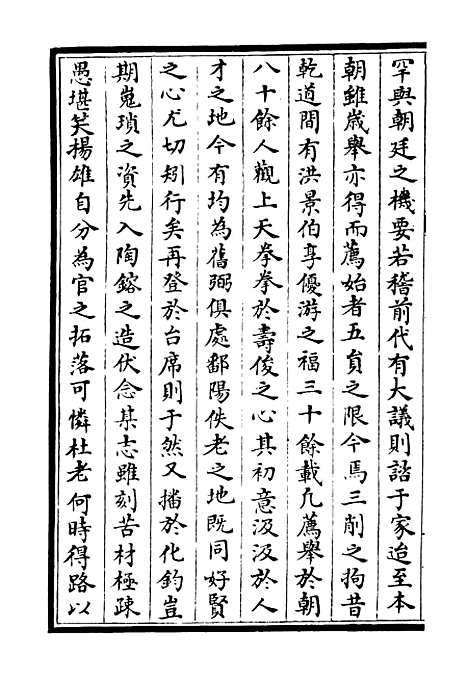 罕與朝廷之機要若稽前代有大議則諮于家迨至本
朝雖歲舉亦得而薦始者五員之限今焉三削之拘昔
乾道間有洪景伯享優游之福三十餘載凢薦舉於朝
八十餘人觀上天拳拳於壽俊之心其初意汲汲於人
才之地今有均為舊弼俱處鄱陽佚老之地既同好賢
之心尤切矧行矣再登於台席則于然又播於化鈞豈
期嵬瑣之資先入陶鎔之造伏念某志雖刻苦材極疎
愚堪笑楊雄自分為官之拓落可憐杜老何時得路以